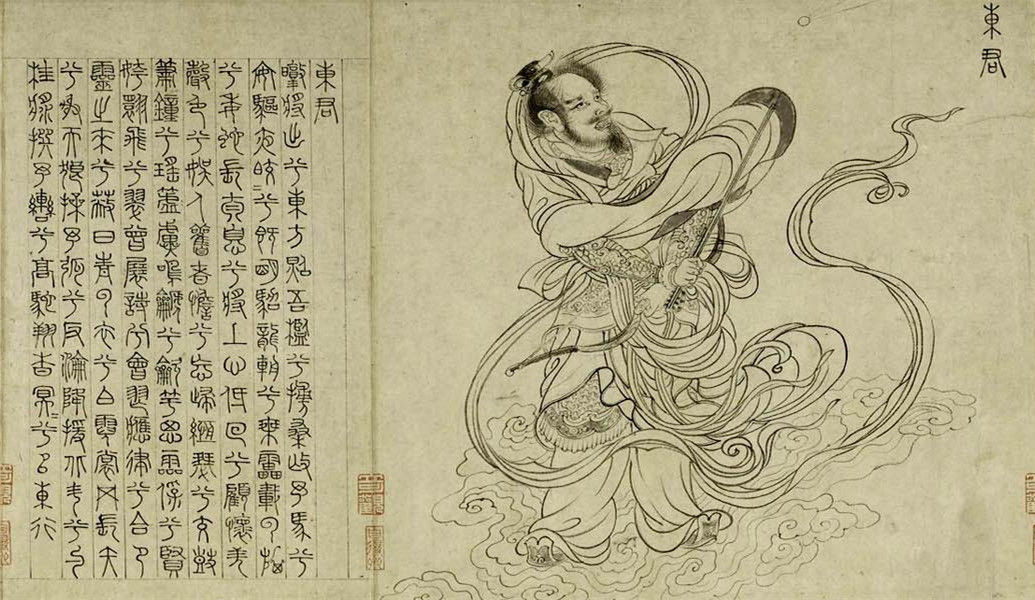 東君
東君
暾將出兮東方照吾檻兮扶桑撫予馬兮
安驅夜皎=兮既明駕龍輈兮乘雷載雲旗
兮委蛇長太息兮將上心低佪兮顧懷羌
聲色兮娛人觀者憺兮忘歸緪瑟兮交鼓
簫鐘兮瑤簴鳴篪兮龡竽思靈保兮賢
姱翾飛兮翠曾展詩兮會舞應律兮合節
靈之來兮蔽日青雲衣兮白霓裳舉長矢
兮射天狼操予弧兮反淪降援北斗兮酌
桂漿撰予轡兮高駝翔杳冥=兮以東行